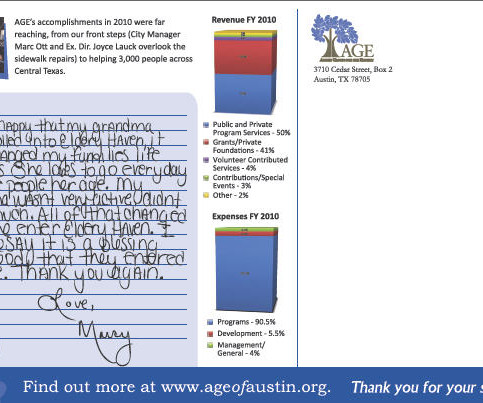 AGE's accomplishments in 2010 were far
reaching, from our front steps (City Manager
Marc Ott and Ex. Dir. Joyce Lauck overlook the
sidewalk repairs) to helping 3,000 people across
Central Texas.
happy that my grandma
into Eldery Haven, it
my famlies life
She loves to go everyday
people her age. My
wasnt very active didnt
much. All of that changed
she enter eldery Haven. I
say it is a blessing
body that they entered
Thank you again.
Love,
Mary
Revenue FY 2010
Public and Private
Program Services - 50%
Grants/Private
Foundations - 41%
Volunteer Contributed
Services - 4%
Contributions/Special
Events - 3%
Other - 2%
Expenses FY 2010
Programs - 90.5%
Development - 5.5%
Management/
General - 4%
AGE
3710 Cedar Street, Box 2
Austin, TX 78705
Find out more at www.ageofaustin.org. Thank you for your s